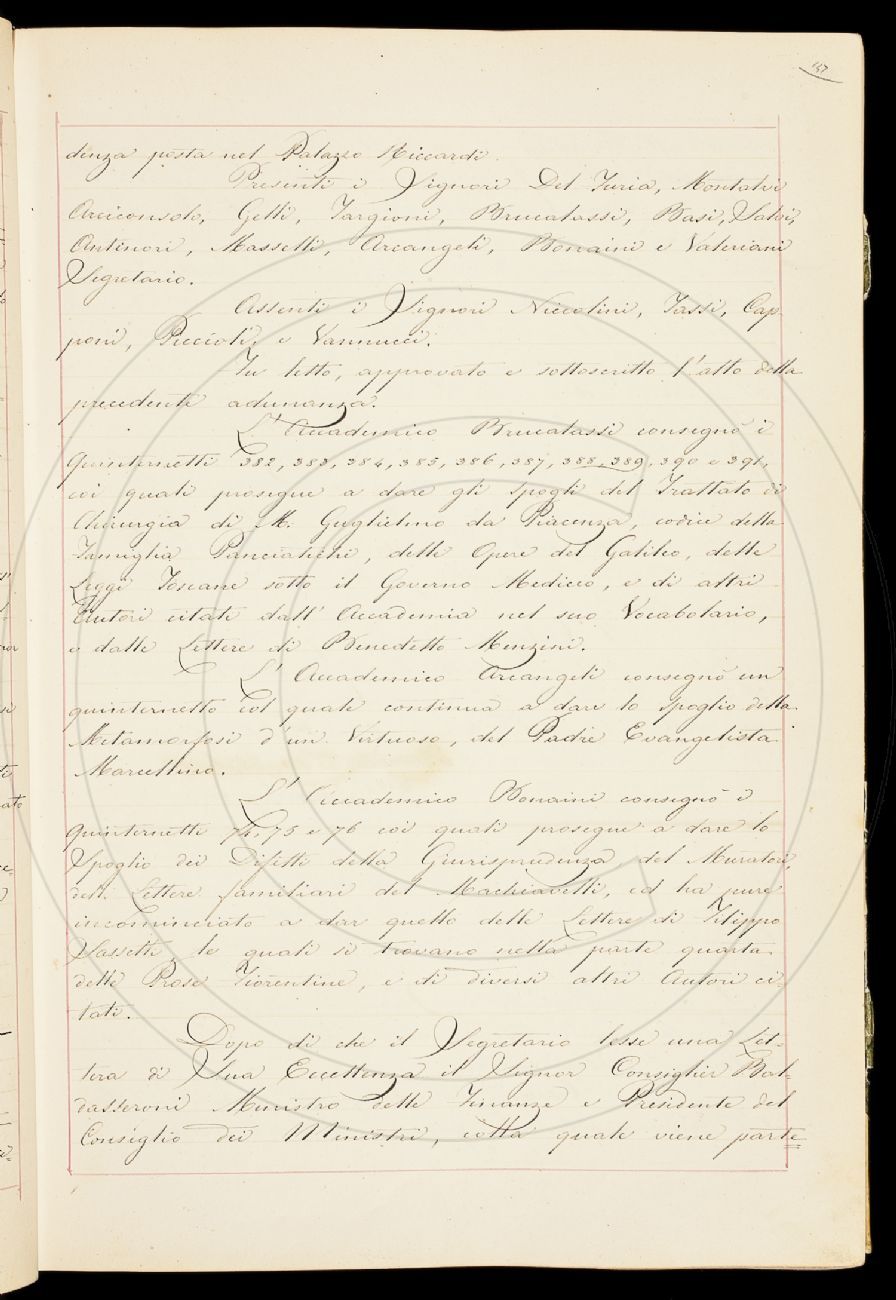 denza posta nel Palazzo Riccardi.
Presenti i Signori Del Furia, Montalvi
Arciconsolo, Gelli, Targioni, Brucalassi, Basi, Salvi,
Antinori, Masselli, Arcangeli, Bonaini e Valeriani
Segretario.
Assenti i Signori Niccolini, Tassi, Cap-
poni, Puccioli, e Vannucci.
Fu letto, approvato e sottoscritto l'atto della
precedente adunanza.
L'Accademico Brucalassi consegnò i
quinternetti 382, 383, 384, 385, 386, 387, 388, 389, 390 e 391,
coi quali prosegue a dare gli spogli del Trattato di
Chirurgia di M. Guglielmo da Piacenza, codice della
Famiglia Panciatichi, delle Opere del Galileo, delle
Leggi Toscane sotto il Governo Mediceo, e di altri
Autori citati dall'Accademia nel suo Vocabolario,
e dalle Lettere di Benedetto Menzini.
L'Accademico Arcangeli consegnò un
quinternetto col quale continua a dare lo spoglio della
Metamorfosi d'un Virtuoso, del Padre Evangelista
Marcellino.
L'Accademico Bonaini consegnò i
quinternetti 74, 75 e 76 coi quali prosegue a dare lo
Spoglio dei Difetti della Giurisprudenza del Muratori,
delle Lettere familiari del Machiavelli, ed ha pure
incominciato a dar quello delle Lettere di Filippo
Sassetti le quali si trovano nella parte quarta
delle Prose Fiorentine, e di diversi altri Autori ci-
tati.
Dopo di che il Segretario lesse una Let-
tera di Sua Eccellenza il Signor Consiglier Bal-
dasseroni Ministro delle Finanze e Presidente del
Consiglio dei Ministri, colla quale viene parte